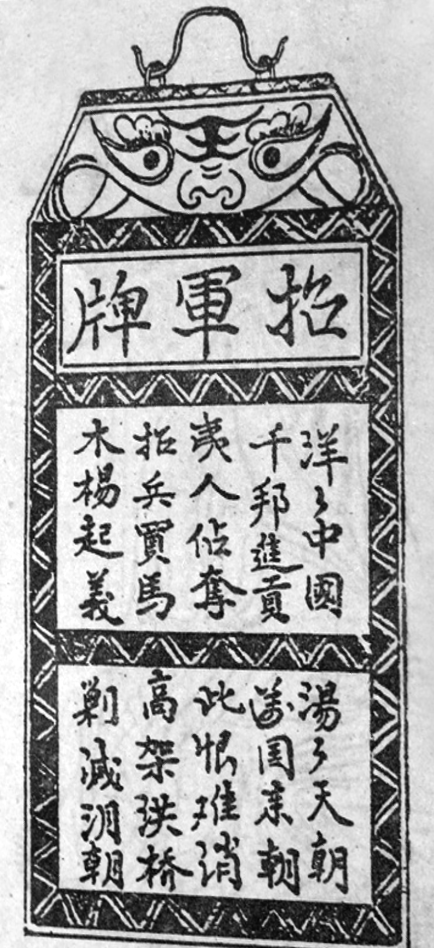 王
招軍牌
洋〻中國
湯〻天朝
千邦進貢
萬囯来朝
夷人佔奪
此恨难消
招兵買馬
高架洪橋
木楊起義
剿滅朝